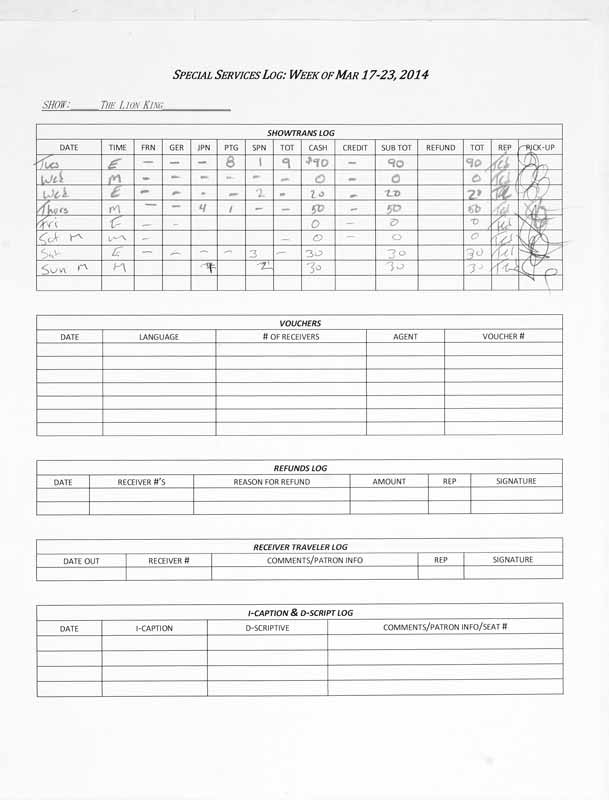 SPECIAL SERVICES LOG: WEEK OF MAR 17-23, 2014
SHOW: THE LION KING
SHOWTRANS LOG
DATE TIME FRN GER JPN PTG SPN TOT CASH CREDIT SUB TOT REFUND TOT REP PICK-UP
Tues E – – – 8 1 9 $90 – 90 90 Ted
Wed M – – – – – – 0 – 0 0 Ted
Wed E – – - – 2 – 20 – 20 20 Ted
Thurs M – – 4 1 – – 50 – 50 50 Ted
Fri E – – 0 – 0 0 Ted
Sat M M – – 0 – 0 0 Ted
Sat E – – – – 3 – 30 30 30 Ted
Sun M M 2 30 30 30
VOUCHERS
DATE LANGUAGE # OF RECEIVERS AGENT VOUCHER #
REFUNDS LOG
DATE RECEIVER #'S REASON FOR REFUND AMOUNT REP SIGNATURE
RECEIVER TRAVELER LOG
DATE OUT RECEIVER # COMMENTS/PATRON INFO REP SIGNATURE
I-CAPTION & D-SCRIPT LOG
DATE I-CAPTION D-SCRIPTIVE COMMENTS/PATRON INFO/SEAT #